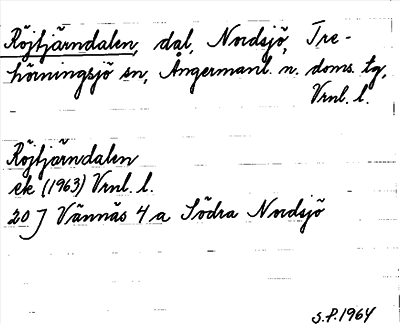 Röjtjärndalen, dal, Nordsjö, Tre-
hörningsjö sn, Ångermanl. n. doms. tg,
Vrnl. l.
Röjtjärndalen
ek (1963) Vrnl. l.
20 J Vännäs 4 a Södra Nordsjö
S.P. 1964